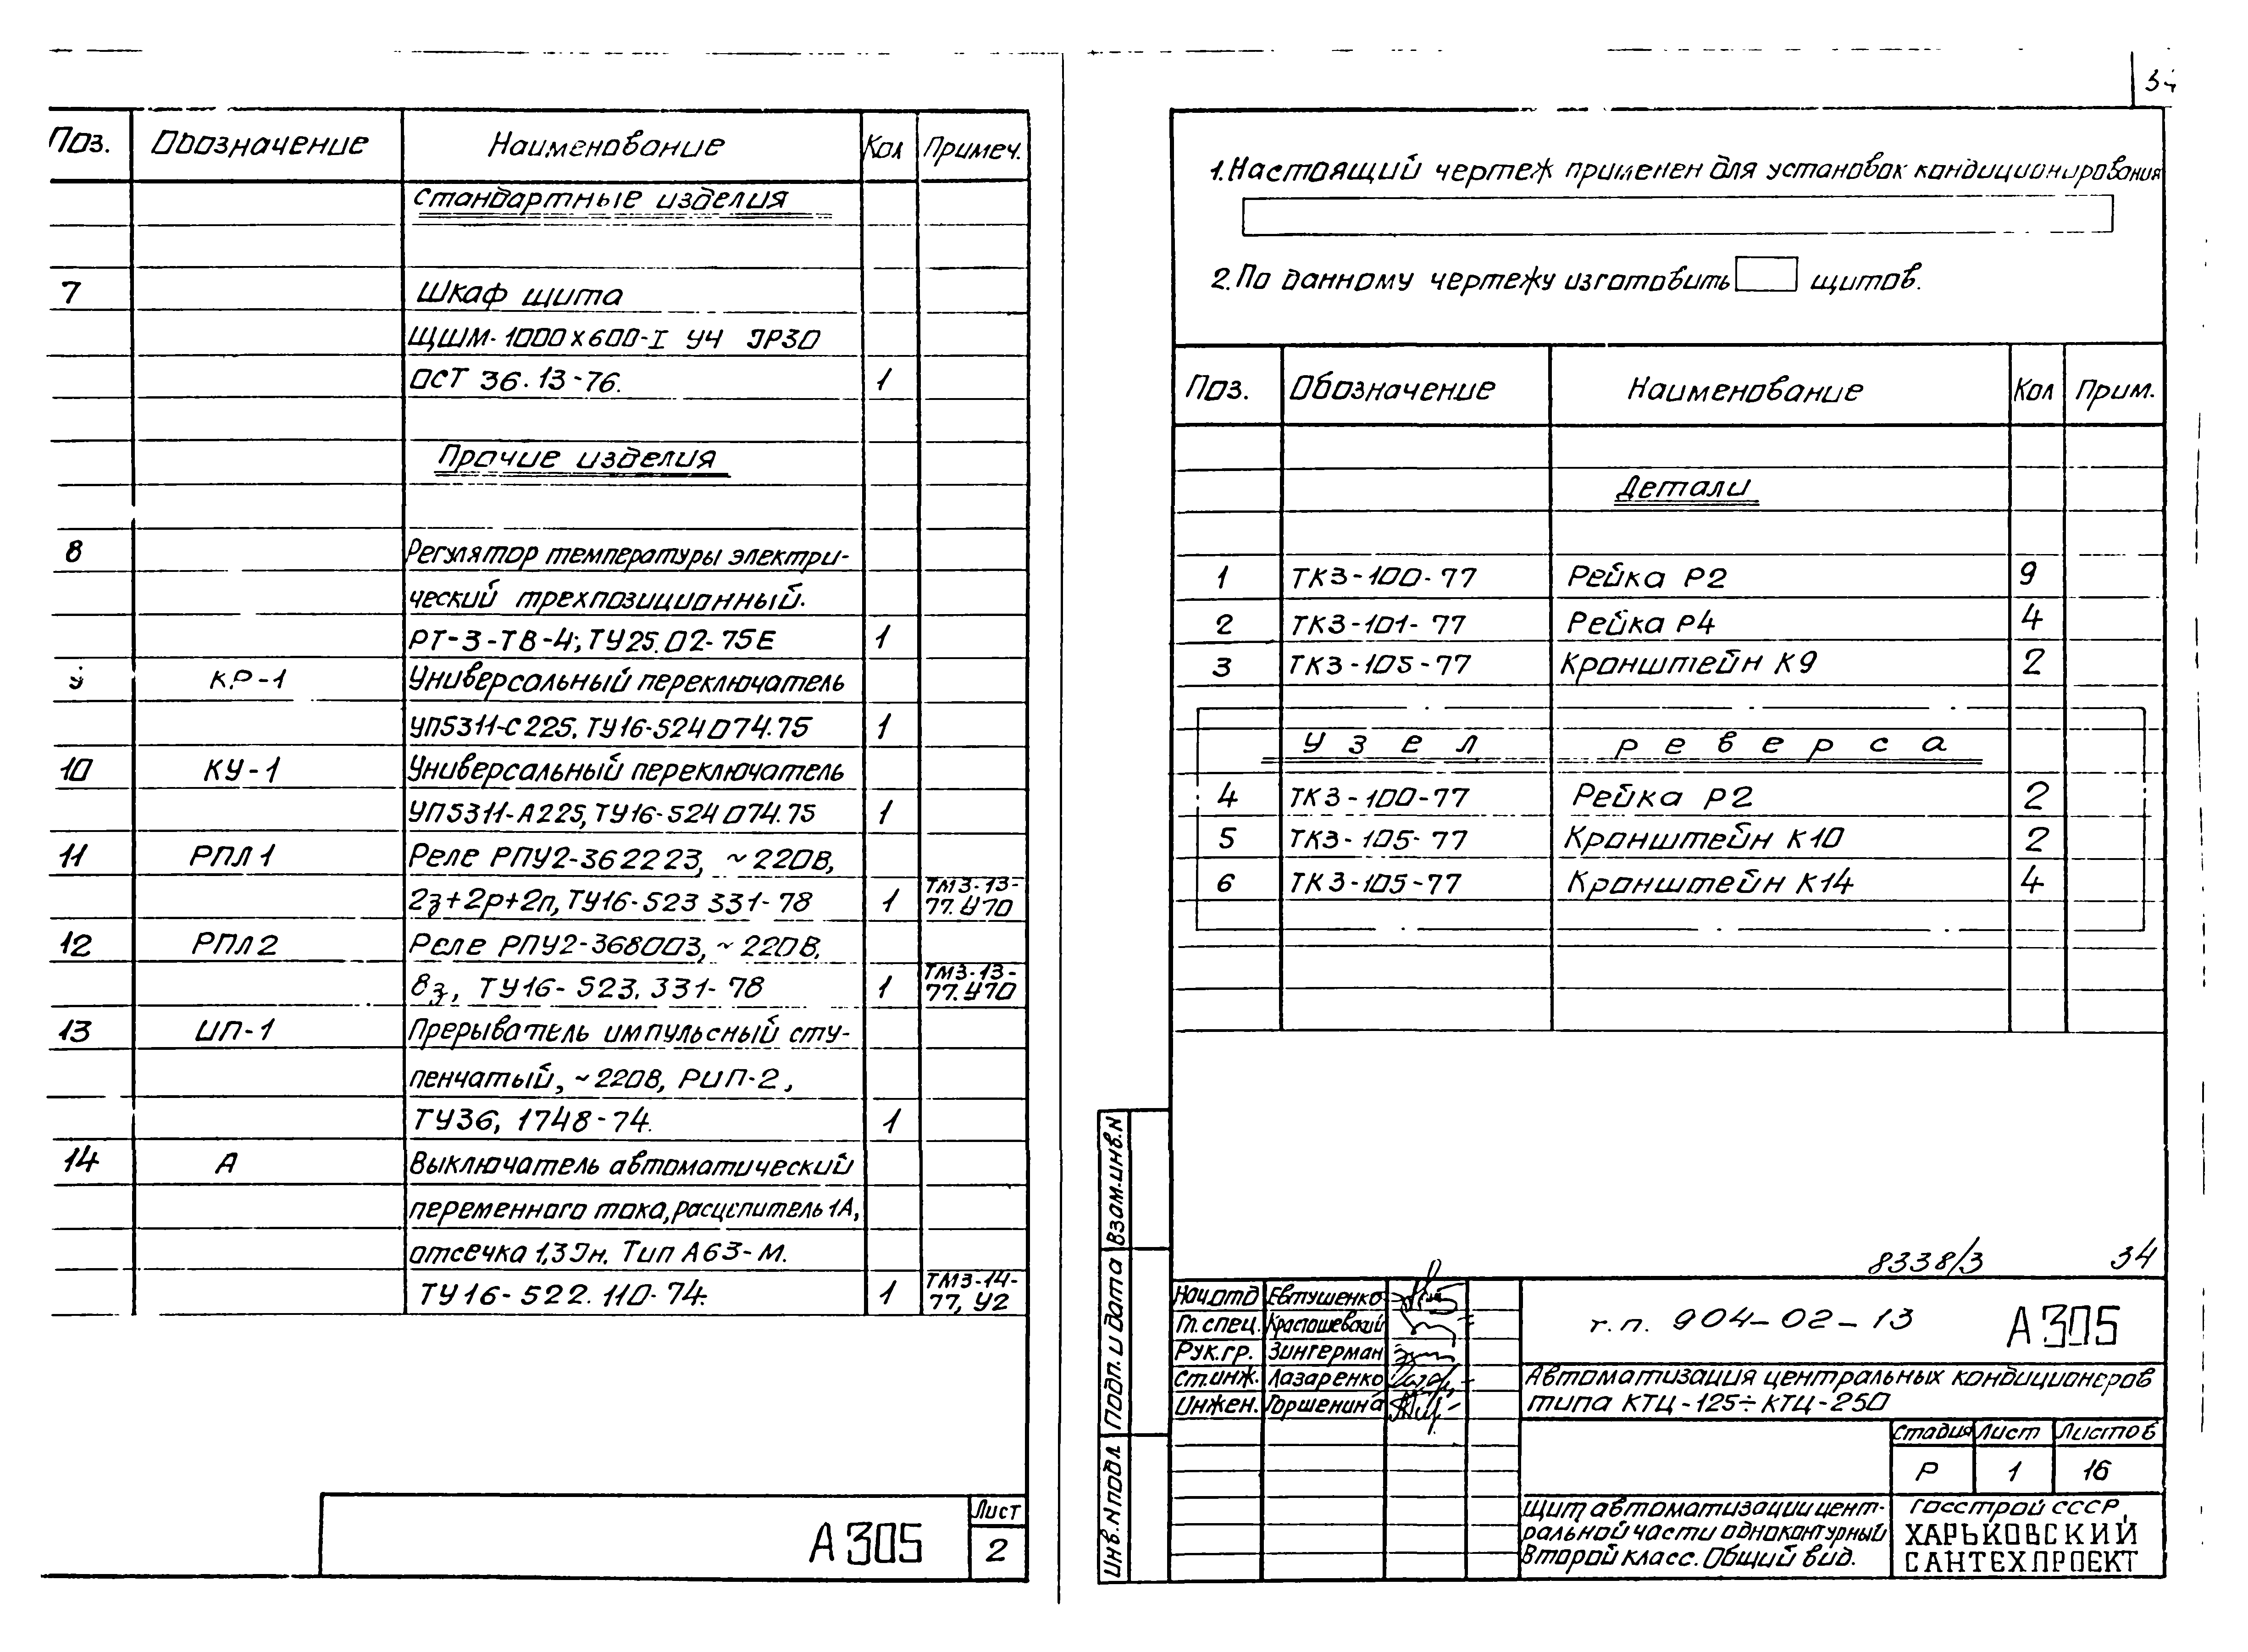 Поз. Обозначение Наименование Кол Примеч.
Стандартные изделия
7 Шкаф щита
ЩШМ-1000х600-I У4 IР30
ОСТ 36.13-76. 1
Прочие изделия
8 Регулятор температуры электри-
ческий трехпозиционный.
РТ-3-ТВ-4; ТУ25.02-75Е 1
9 КР-1 Универсальный переключатель
УП5311-С225, ТУ16-524 074.75 1
10 КУ-1 Универсальный переключатель
УП5311-А225, ТУ16-524 074.75 1
11 РПЛ1 Реле РПУ2-362223, ~220В,
2з+2р+2п, ТУ16-523 331-78 1 ТМ3-13-77.У70
12 РПЛ2 Реле РПУ2-368003, ~220В,
8з, ТУ16-523.331-78 1 ТМ3-13-77.У70
13 ИП-1 Прерыватель импульсный сту-
пенчатый, ~220В, РИП-2,
ТУ36, 1748-74. 1
14 А Выключатель автоматический
переменного тока, расцепитель 1А,
отсечка 1,3 Iн. Тип А63-М.
ТУ16-522.110-74. 1 ТМ3-14-77, У2
А305
Лист
2
34
1. Настоящий чертеж применен для установок кондиционирования
2. По данному чертежу изготовить щитов.
Поз. Обозначение Наименование Кол Прим.
Детали
1 ТК3-100-77 Рейка Р2 9
2 ТК3-101-77 Рейка Р4 4
3 ТК3-105-77 Кронштейн К9 2
Узел реверса
4 ТК3-100-77 Рейка Р2 2
5 ТК3-105-77 Кронштейн К10 2
6 ТК3-105-77 Кронштейн К14 4
8338/3 34
Инв.N подл Подп. и дата Взам.инв.N
Нач.отд Евтушенко
Гл.спец.
Рук.гр. Зингерман
Ст.инж. Лазаренко
Инжен. Горшенина
т.п. 904-02-13 А305
Автоматизация центральных кондиционеров
типа КТЦ-125÷КТЦ-250
Стадия Лист Листов
Р 1 16
Щит автоматизации цент-
ральной части одноконтурный
Второй класс. Общий вид.
Госстрой СССР,
ХАРЬКОВСКИЙ
САНТЕХПРОЕКТ